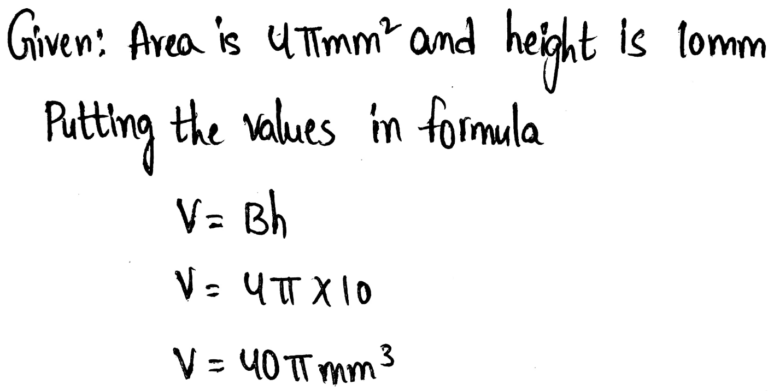 Given: Area is 4πmm² and height is 10mm
Putting the values in formula
V = Bh
V = 4π × 10
V = 40π mm³